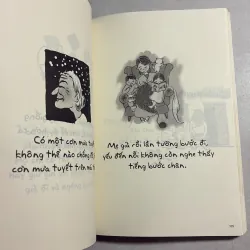 Có một cơn mưa tuyết
không thể nào chống đỡ
cơn mưa tuyết trên mái
Mẹ già rồi lần tường bước đi,
yếu đến nỗi không còn nghe thấy
tiếng bước chân.